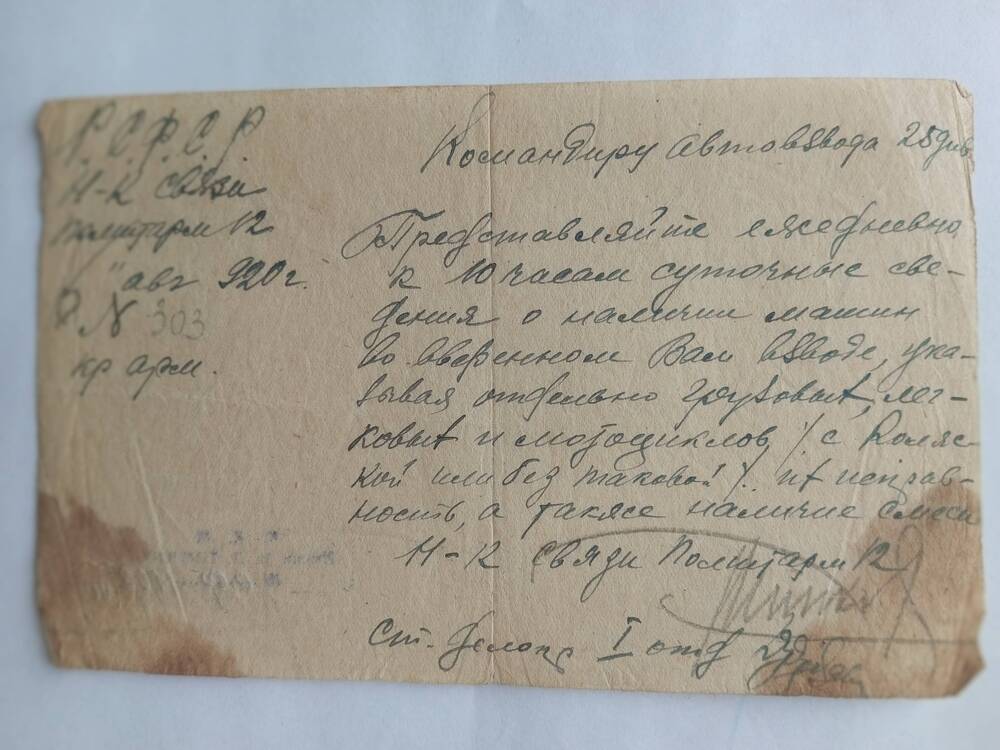 Р.С.Ф.С.Р.
Н-к связи
Политарм 12
" авг 920 г.
№ 303
кр арм.
Командиру Автовзвода 25 див
Представляйте ежедневно
к 10 часам суточные све-
дения о наличии машин
во вверенном Вам взводе, ука-
зывая отдельно грузовых, лег-
ковых и мотоциклов / с коляс-
кой или без таковой /. их исправ-
ность, а также наличие смеси
Н-к связи Политарм 12
ст. делопр I отд